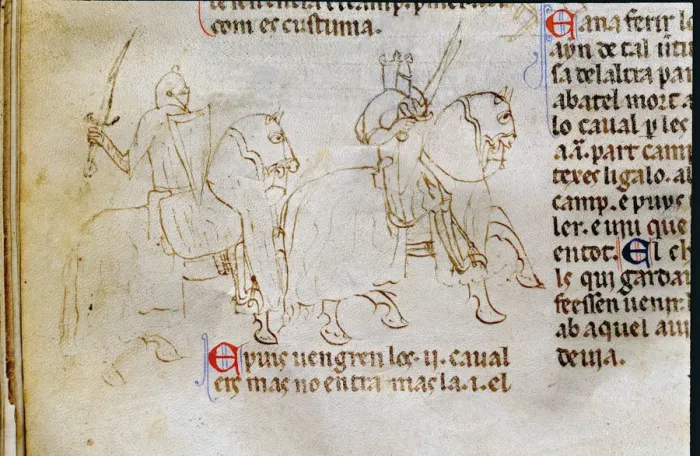 com es custuma.
E puis uengren los .ii. caual
ers mas no entra mas la .i. el
E ana ferir lo
ayn de tal
sa del altra par
abatel mort a
lo caual p les
part camp
teres ligalo. al
camp. e puys
ler. e uiu que
entot. El ch
le qui gardar
feessen uenir l
ab aquel aui
deuia.